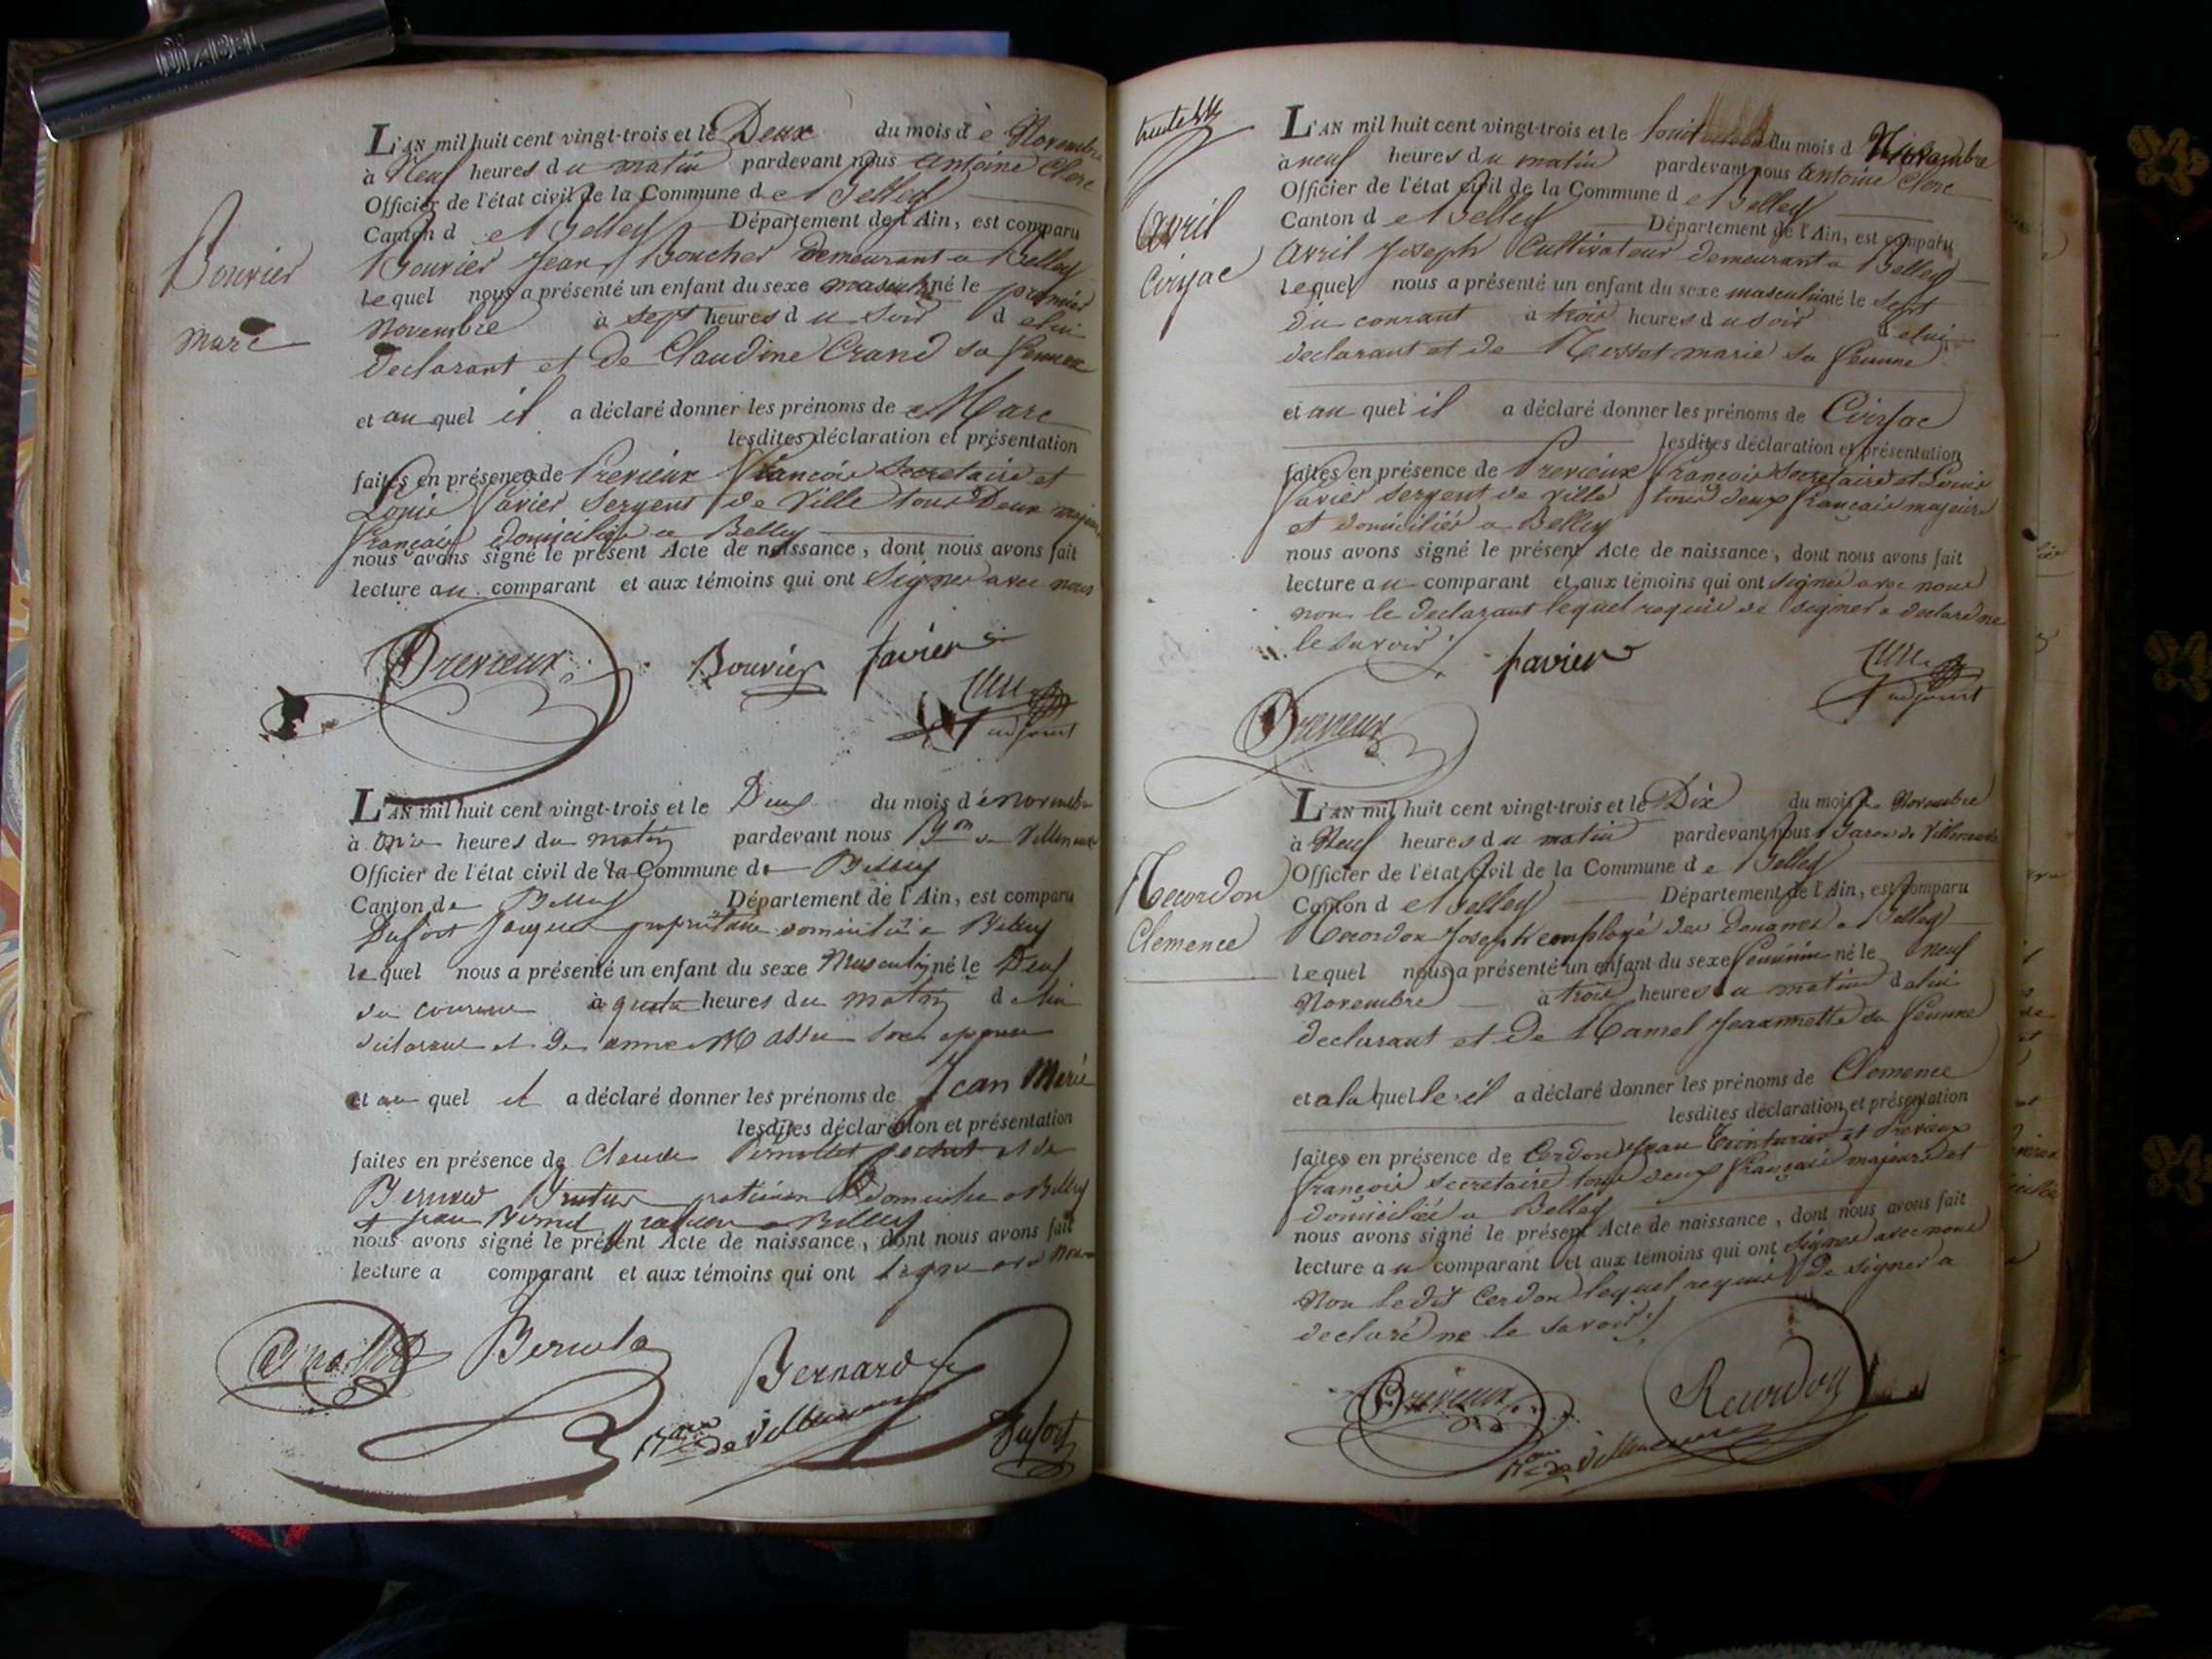 L'AN mil huit cent vingt-trois et le Deux du mois de Novembre
à Neuf heures du matin pardevant nous antoine Clerc
Officier de l'état civil de la Commune de Belley
Canton de Belley Département de l'Ain, est comparu
Bouvier Jean Boucher demeurant a Belley
lequel nous a présenté un enfant du sexe masculin né le premier
Novembre à sept heures du soir de lui
Declarant et de Claudine Crand sa femme
et au quel il a déclaré donner les prénoms de Marc
lesdites déclaration et présentation
faites en présence de Previeux François Secretaire et
Louis Favier Sergent de Ville tous Deux majeurs
français domiciliés a Belley
nous avons signé le présent Acte de naissance, dont nous avons fait
lecture au comparant et aux témoins qui ont Signés avec nous
Bouvier
Marc
Previeux Bouvier favier
adjoint
L'AN mil huit cent vingt-trois et le Deux du mois de novembre
à onze heures du matin pardevant nous Bon de Villeneuve
Officier de l'état civil de la Commune de Belley
Canton de Belley Département de l'Ain, est comparu
Dufort Jacques propriétaire domicilié a Belley
lequel nous a présenté un enfant du sexe Masculin né le Deux
du courant à quatre heures du matin de lui
declarant et de anne son epouse
et au quel il a déclaré donner les prénoms de Jean Marie
lesdites déclaration et présentation
faites en présence de Claude et de
Bernard domicilié a Belley
et a Belley
nous avons signé le présent Acte de naissance, dont nous avons fait
lecture a comparant et aux témoins qui ont signé avec nous
Bernard
Bon de Villeneuve Dufort
L'AN mil huit cent vingt-trois et le huit du mois d Novembre
à neuf heures du matin pardevant nous antoine Clerc
Officier de l'état civil de la Commune de Belley
Canton de Belley Département de l'Ain, est comparu
Avril Joseph Cultivateur demeurant a Belley
lequel nous a présenté un enfant du sexe masculin né le sept
du courant à trois heures du soir de lui
declarant et de Rosset marie sa femme
et au quel il a déclaré donner les prénoms de Ciryac
lesdites déclaration et présentation
faites en présence de Previeux françois Secretaire et Louis
favier Sergent de ville tous deux français majeurs
et domiciliés a Belley
nous avons signé le présent Acte de naissance, dont nous avons fait
lecture au comparant et aux témoins qui ont signés avec nous
non le declarant lequel requis de signer a declaré ne
le savoir
Avril
Ciryac
favier
adjoint
Previeux
L'AN mil huit cent vingt-trois et le Dix du mois de Novembre
à Neuf heures du matin pardevant nous Baron de Villeneuve
Officier de l'état civil de la Commune de Belley
Canton de Belley Département de l'Ain, est comparu
Recordon Joseph employé des Douanes a Belley
lequel nous a présenté un enfant du sexe feminin né le neuf
Novembre à trois heures du matin de lui
declarant et de Hamel Jeannette sa femme
et a la quelle il a déclaré donner les prénoms de Clemence
lesdites déclaration et présentation
faites en présence de Cerdon Jean Teinturier et Previeux
françois Secretaire tous deux français majeurs et
domiciliés a Belley
nous avons signé le présent Acte de naissance, dont nous avons fait
lecture au comparant et aux témoins qui ont signés avec nous
Non ledit Cerdon lequel requis de signer a
declaré ne le savoir
Recordon
Clemence
Previeux Recordon
Bon de Villeneuve